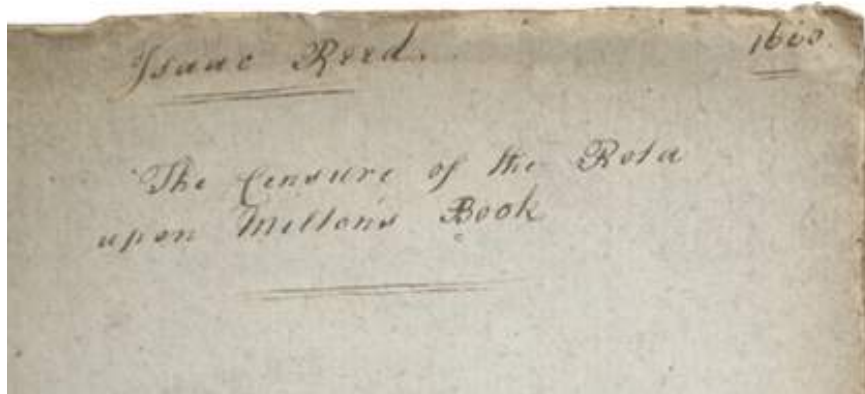 Isaac Reed. 1660.
The Censure of the Rota
upon Milton's Book